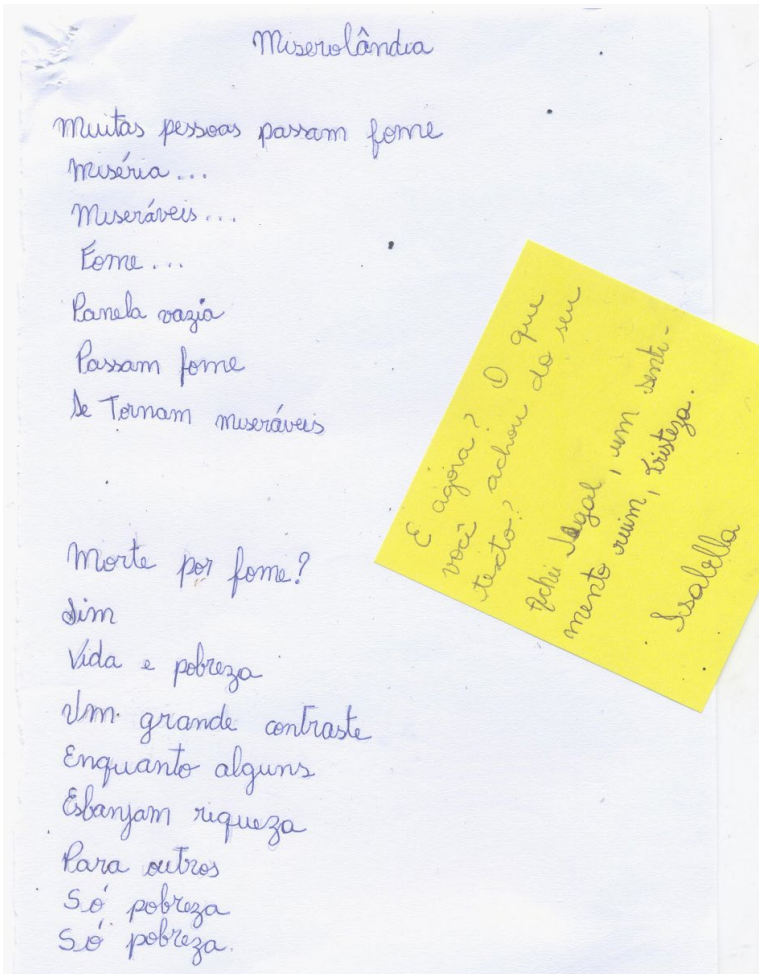 Miserolândia
Muitas pessoas passam fome
Miséria...
Miseráveis...
Fome...
Panela vazia
Passam fome
Se Tornam miseráveis
Morte por fome?
Sim
Vida e pobreza
Um grande contraste
Enquanto alguns
Esbanjam riqueza
Para outros
Só pobreza
Só pobreza.
E agora? O que
você achou do seu
texto?
Achei legal, um senti-
mento ruim, tristeza.
Isabella